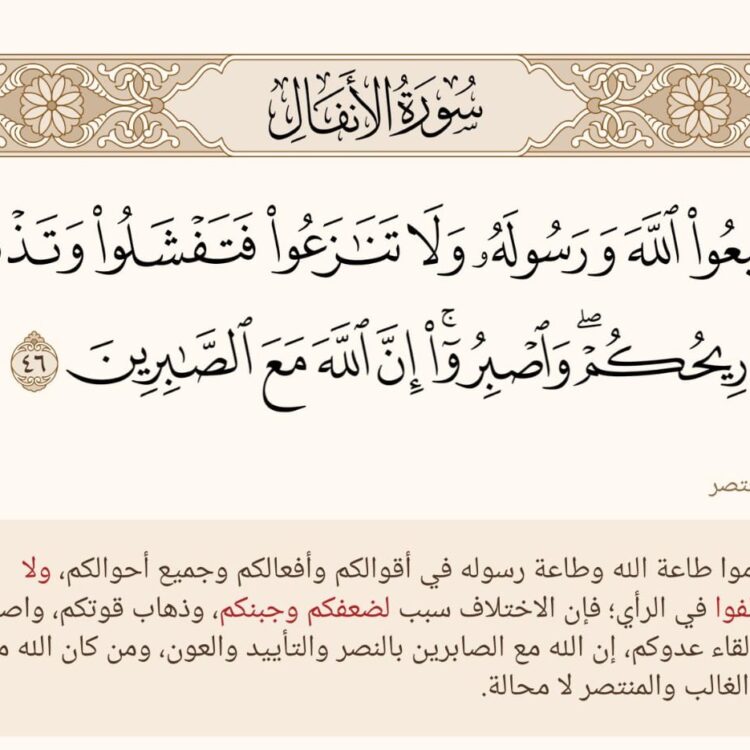 سُورَةُ الأَنفَالِ
ٱللَّهَ وَرَسُولَهُۥ وَلَا تَنَٰزَعُواْ فَتَفۡشَلُواْ
رِيحُكُمۡۖ وَٱصۡبِرُوٓاْۚ إِنَّ ٱللَّهَ مَعَ ٱلصَّٰبِرِينَ ٤٦
طاعة الله وطاعة رسوله في أقوالكم وأفعالكم وجميع أحوالكم، ولا
في الرأي؛ فإن الاختلاف سبب لضعفكم وجبنكم، وذهاب قوتكم،
عدوكم، إن الله مع الصابرين بالنصر والتأييد والعون، ومن كان الله
الغالب والمنتصر لا محالة.